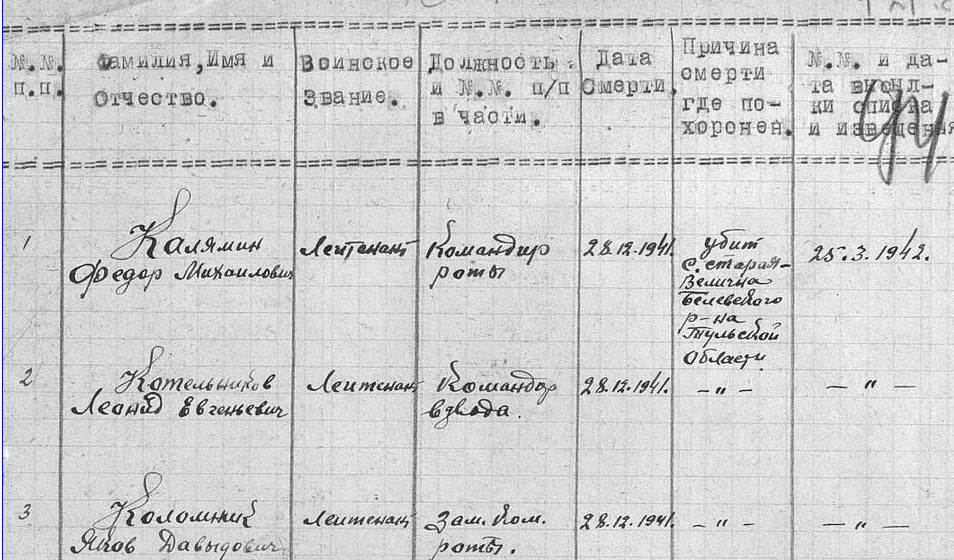 №.№. п.п.
Фамилия, Имя и
Отчество.
Воинское
Звание.
Должность
и №.№. п/п
в части.
Дата
Смерти.
Причина
смерти
где по-
хоронен.
№.№. и да-
та высыл-
ки списка
и извещения
1
Калямин
Федор Михаилович
Леитенант
Командир
роты
28.12.1941.
убит
с. старая-
Велична
Белевского
р-на
Тульской
Области
25.3.1942.
2
Котельников
Леонид Евгеньевич
Леитенант
Командир
взвода.
28.12.1941.
— " —
— " —
3
Коломник
Яков Давыдович
Леитенант
Зам. Ком.
роты.
28.12.1941.
— " —
— " —